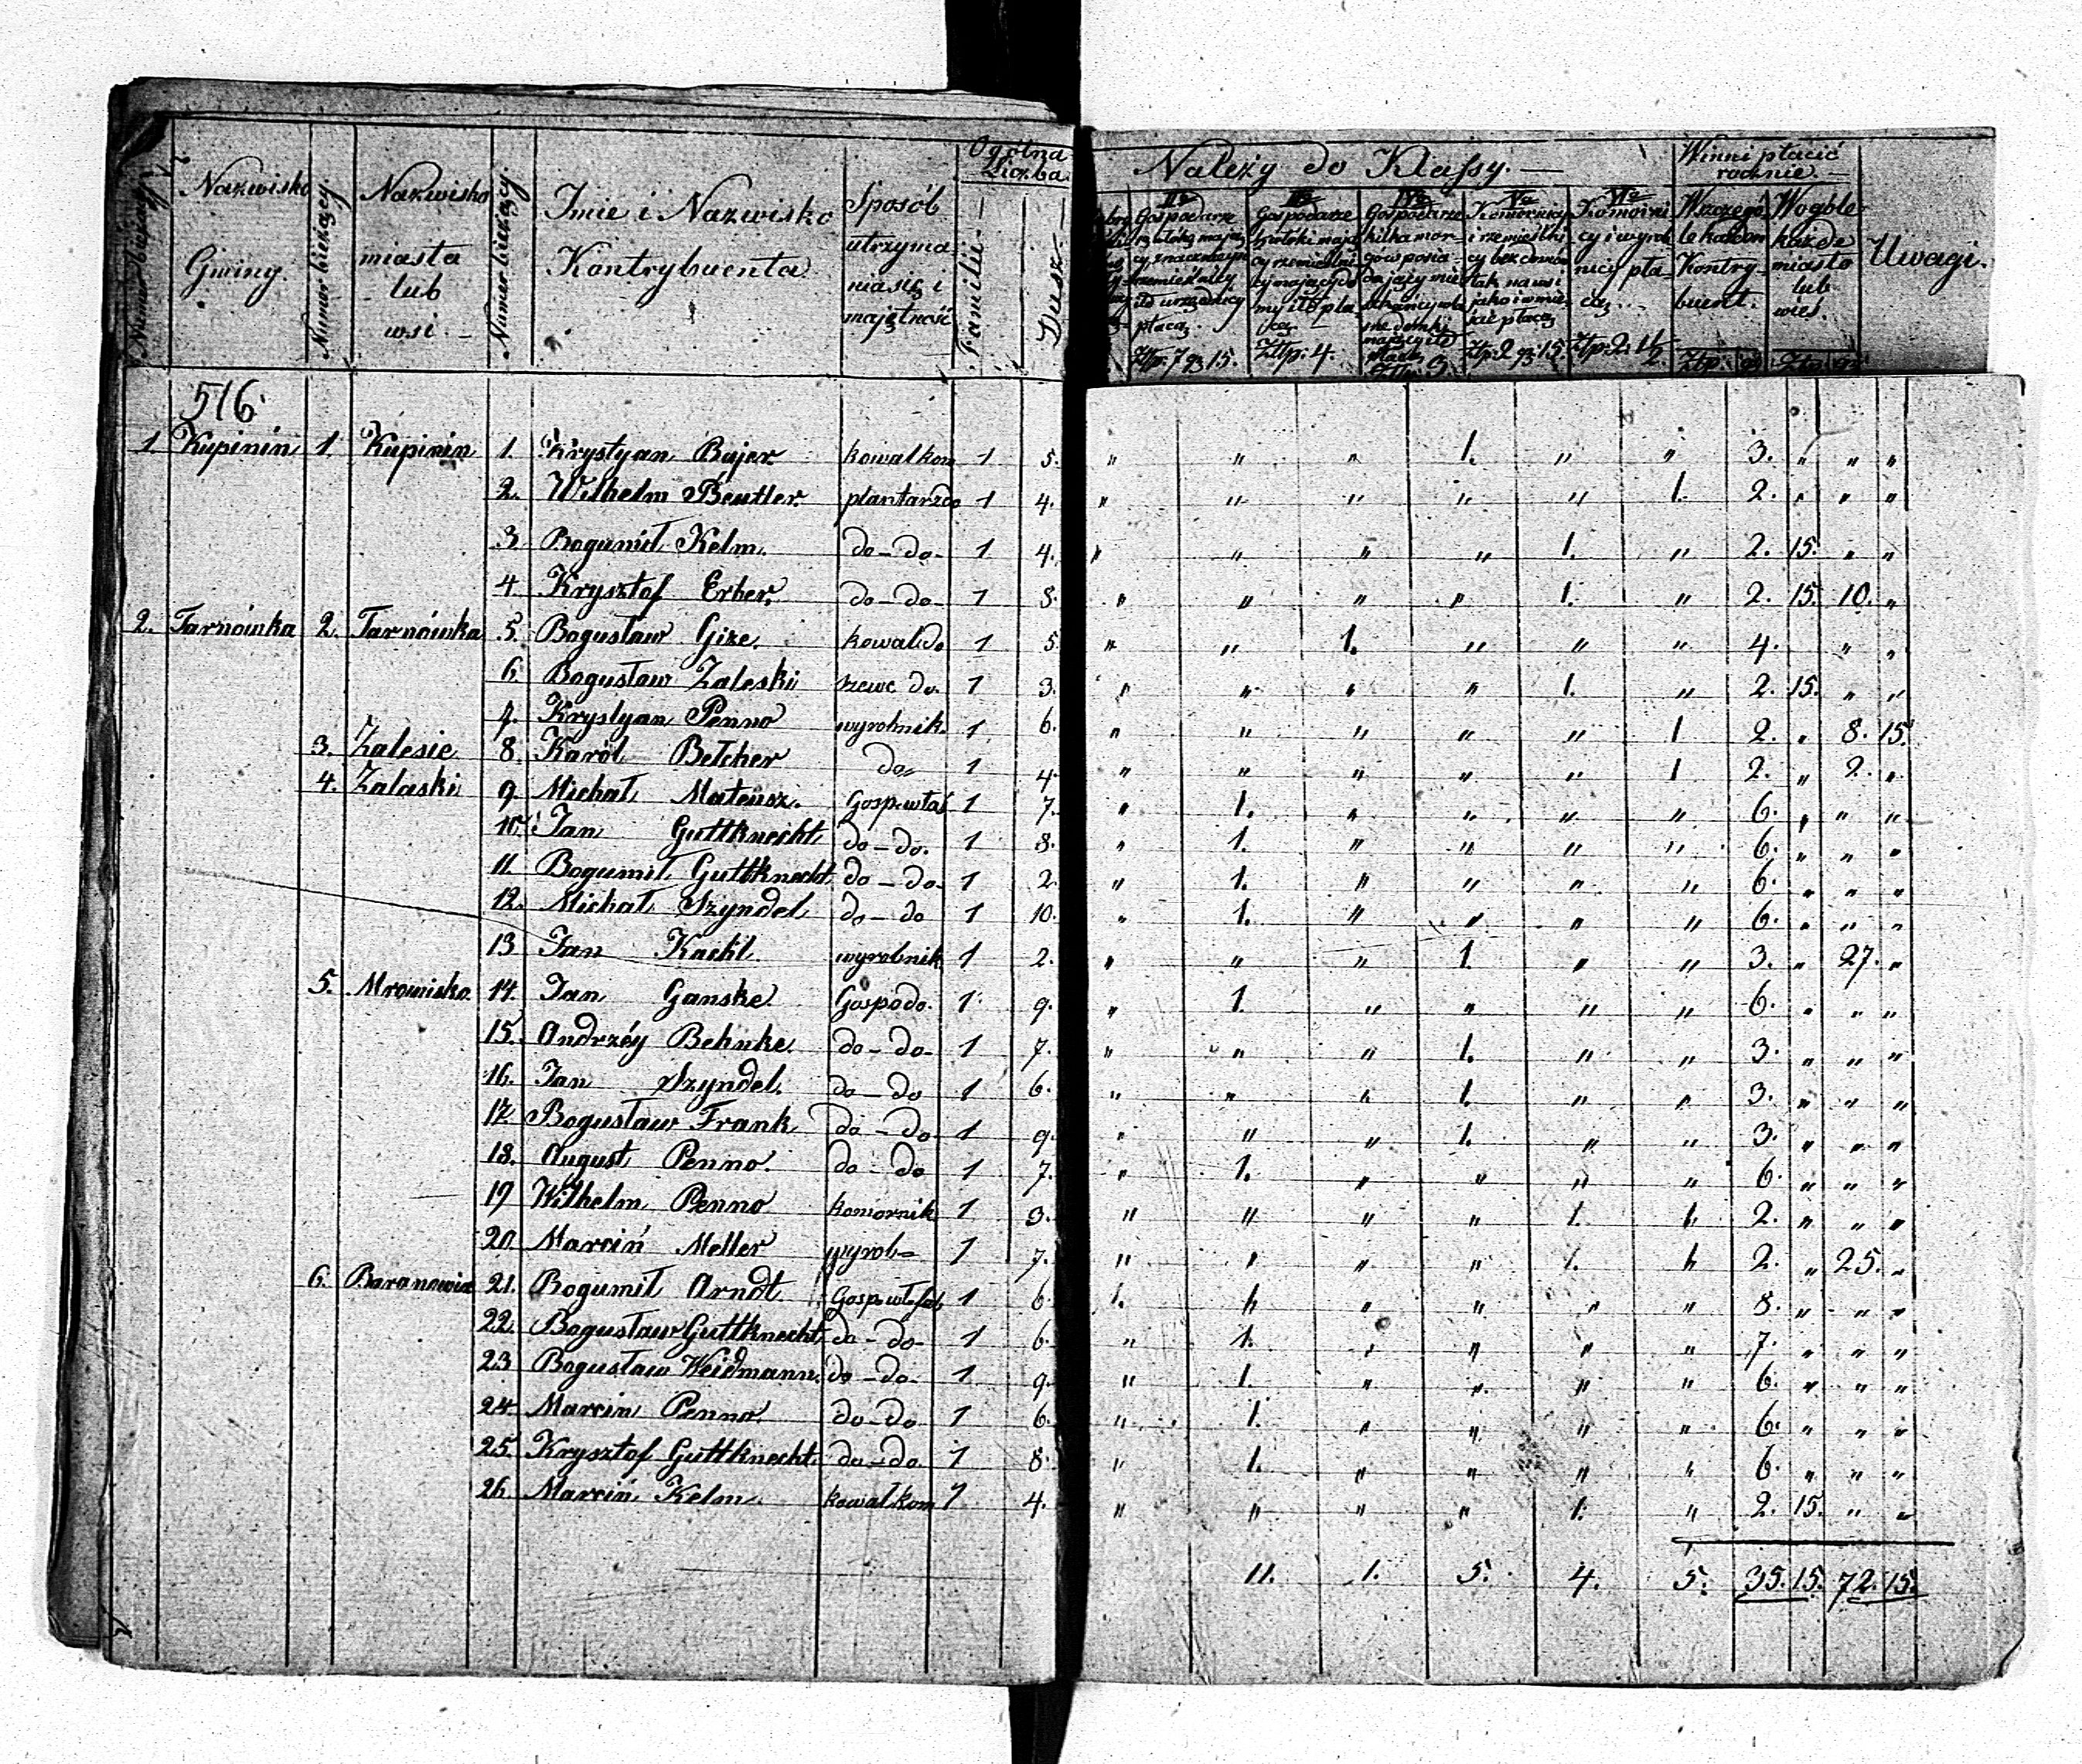 Numer bieżący
Nazwisko Gminy.
Numer bieżący.
Nazwisko miasta lub wsi.
Numer bieżący.
Imie i Nazwisko Kontrybuenta
Sposób utrzymania się i majętność
Ogólna Liczba
Familii
Dusz
Należy do Klassy.
IIa Gospodarze
płacą. Złtp: 7 gr 15.
IIIa Gospodarze
Złtp: 4.
IVa Gospodarze
Va Komornicy i rzemieślnicy bez domów tak na wsi jako i w mieście płacą Złtp: 2 gr: 15.
VIa Komornicy i wyrobnicy płacą Złtp: 2.
Winni płacić rocznie.
Wszczególe każden Kontrybuent. Złtp: gr
Wogóle każde miasto lub wieś. Złtp: gr
Uwagi.
516
1. Kupinin 1. Kupinin 1. Krystyan Bajer kowal kom 1 5. " " " 1. " " 3. " " "
2. Wilhelm Beutler plantarz do 1 4. " " " " " 1. 2. " " "
3 Bogumił Kelm. do-do- 1 4. " " " " 1. " 2. 15. " "
4 Krysztof Erber, do-do- 1 8. " " " " 1. " 2. 15. 10. "
2. Tarnówka 2. Tarnówka 5. Bogusław Gize. kowal do 1 5 " " 1. " " " 4. " "
6. Bogusław Zaleski szewc do. 1 3. " " " " 1. " 2. 15. " "
7. Krystyan Penno wyrobnik. 1. 6. " " " " " 1 2. " 8. 15.
3. Zalesie 8. Karól Betcher do 1 4. " " " " " 1 2. " 2. "
4. Zalaski 9 Michał Mateusz. Gosp. włas 1 7. " 1. " " " " 6. " " "
10. Jan Guttknecht do-do. 1 8. " 1. " " " " 6. " " "
11. Bogumił Guttknecht do-do- 1 2. " 1. " " " " 6. " " "
12. Michał Szyndel do-do 1 10. " 1. " " " " 6. " " "
13 Jan Kachl. wyrobnik. 1 2. " " " 1. " " 3. " 27. "
5. Mrowisko. 14. Jan Ganske Gospodo. 1. 9. " 1. " " " " 6. " " "
15. Andrzéy Behnke. do-do- 1 7. " " " 1. " " 3. " " "
16. Jan Szyndel. do-do 1 6. " " " 1. " " 3. " " "
17. Bogusław Frank do-do 1 9. " " " 1. " " 3. " " "
18. August Penno. do-do 1 7. " 1. " " " " 6. " " "
19 Wilhelm Penno komornik 1 3. " " " " 1. 1. 2. " " "
20 Marciń Meller wyrob= 1 7. " " " " 1. " 2. " 25. "
6. Baranowiz 21. Bogumił Arndt Gosp. 1 6 1. " " " " " 8. " " "
22. Bogusław Guttknecht do-do- 1 6. " 1. " " " " 7. " " "
23 Bogusław Weidmann. do-do- 1 9. " 1. " " " " 6. " " "
24 Marcin Penno do-do 1 6. " 1. " " " " 6. " " "
25. Krysztof Guttknecht. do-do. 1 8. " 1. " " " " 6. " " "
26 Marciń Kelm. kowal kom 1 4. " " " " 1. " 2. 15. " "
11. 1. 5. 4. 5. 35. 15. 72. 15.